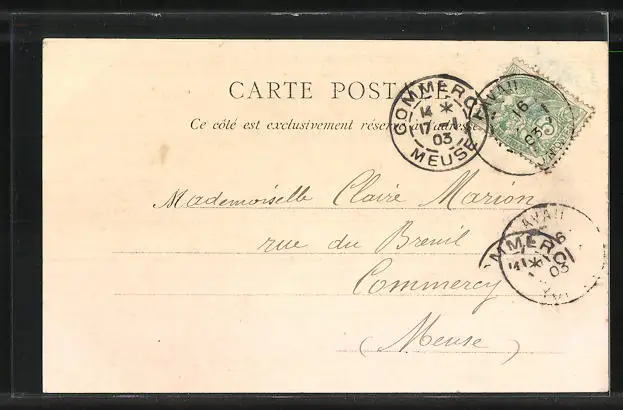 CARTE POSTALE
Ce côté est exclusivement réservé à l'adresse
COMMERCY
14 *
17 -1
03
MEUSE
16
03
5
Mademoiselle Claire Marion
rue du Breuil
Commercy
(Meuse)
6
MMERC
03